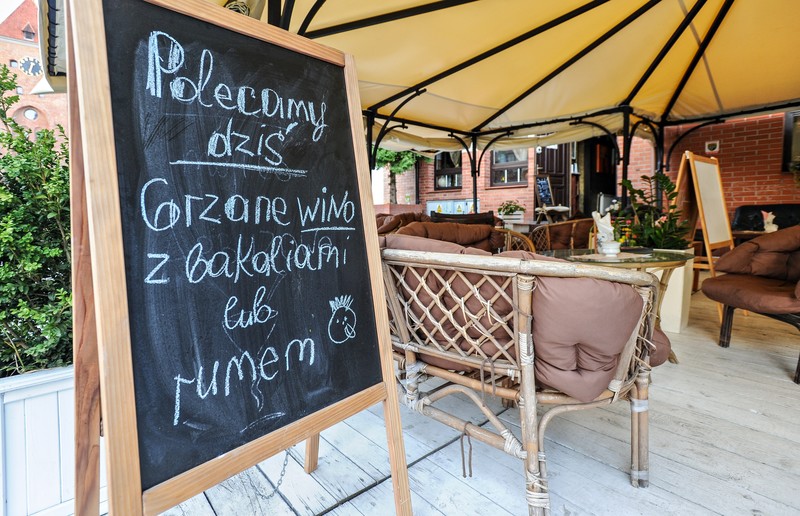 Polecamy
dziś
Grzane wino
z bakaliami
lub
rumem